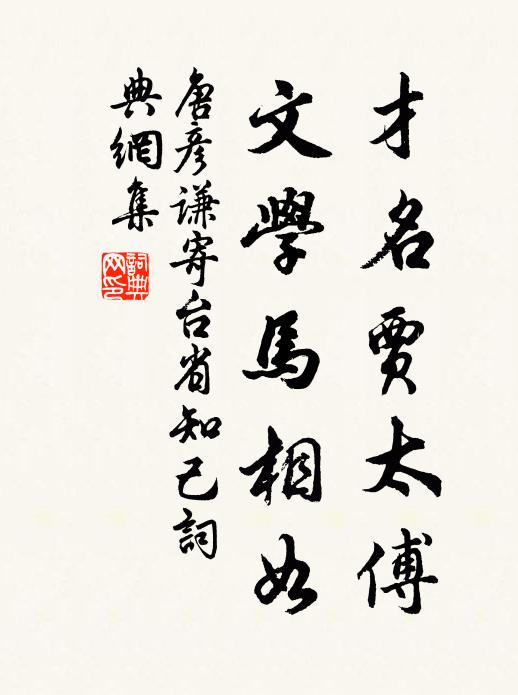 才名賈太傅
文學馬相如
唐彥謙寄台省知己詞
典網集
詞典網印